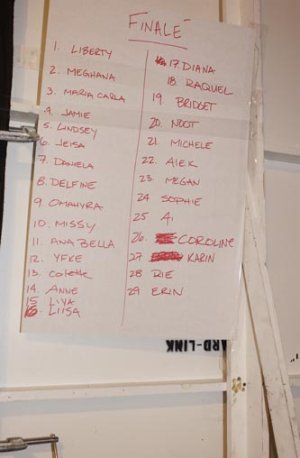 FINALE
1. LIBERTY
2. MEGHANA
3. MARIA CARLA
4. JAMIE
5. LINDSEY
6. JEISA
7. DANIELA
8. DELFINE
9. OMAHYRA
10. MISSY
11. ANA BELLA
12. YFKE
13. Colette
14. ANNE
15 LIYA
16. LIISA
17. DIANA
18. RAQUEL
19. BRIDGET
20. NOOT
21. MICHELE
22. AIEK
23. MEGAN
24 SOPHIE
25 Ai
26. COROLINE
27 KARIN
28 RIE
29 ERIN
ARD-LINK